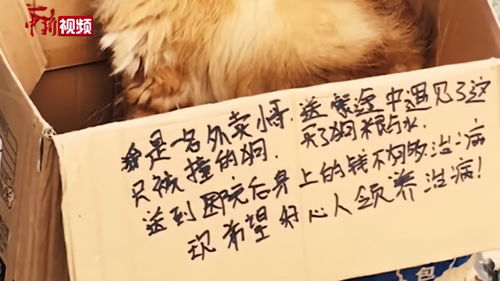 中新视频
我是一名外卖小哥.送餐途中遇见了这
只被撞的狗.买了狗粮与水.
送到医院后身上的钱不够治病
现希望好心人领养治病!
包